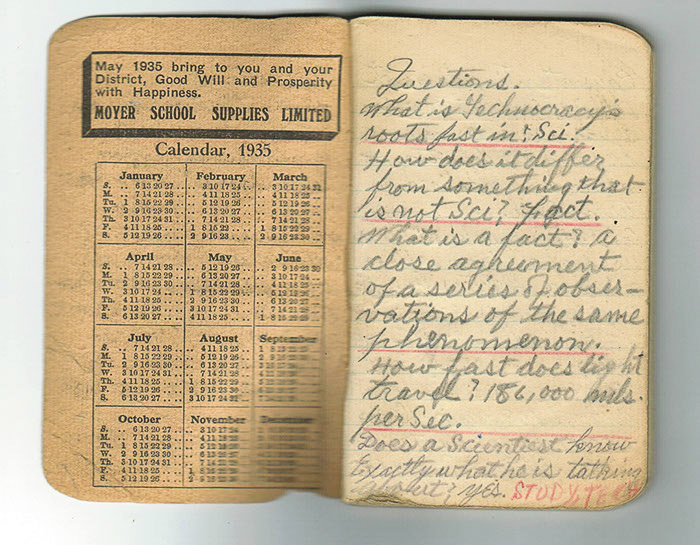 May 1935 bring to you and your
District, Good Will and Prosperity
with Happiness.
MOYER SCHOOL SUPPLIES LIMITED
Calendar, 1935
January February March
S. .. 6 13 20 27 .. .. 3 10 17 24 .. 3 10 17 24 31
M. .. 7 14 21 28 .. .. 4 11 18 25 .. 4 11 18 25
Tu. 1 8 15 22 29 .. .. 5 12 19 26 .. 5 12 19 26
W. 2 9 16 23 30 .. .. 6 13 20 27 .. 6 13 20 27
Th. 3 10 17 24 31 .. .. 7 14 21 28 .. 7 14 21 28
F. 4 11 18 25 .. .. 1 8 15 22 .. .. 1 8 15 22 29
S. 5 12 19 26 .. .. 2 9 16 23 .. .. 2 9 16 23 30
April May June
S. .. 7 14 21 28 .. .. 5 12 19 26 .. 2 9 16 23 30
M. 1 8 15 22 29 .. .. 6 13 20 27 .. 3 10 17 24
Tu. 2 9 16 23 30 .. .. 7 14 21 28 .. 4 11 18 25
W. 3 10 17 24 .. .. 1 8 15 22 29 .. 5 12 19 26
Th. 4 11 18 25 .. .. 2 9 16 23 30 .. 6 13 20 27
F. 5 12 19 26 .. .. 3 10 17 24 31 .. 7 14 21 28
S. 6 13 20 27 .. .. 4 11 18 25 .. 1 8 15 22 29
July August September
S. .. 7 14 21 28 .. .. 4 11 18 25
M. 1 8 15 22 29 .. .. 5 12 19 26
Tu. 2 9 16 23 30 .. .. 6 13 20 27
W. 3 10 17 24 31 .. .. 7 14 21 28
Th. 4 11 18 25 .. .. 1 8 15 22 29
F. 5 12 19 26 .. .. 2 9 16 23 30
S. 6 13 20 27 .. .. 3 10 17 24 31
October November December
S. .. 6 13 20 27 .. .. 3 10 17 24
M. .. 7 14 21 28
Tu. 1 8 15 22 29
W. 2 9 16 23 30
Th. 3 10 17 24 31
F. 4 11 18 25
S. 5 12 19 26
Questions.
What is Technocracy's
roots fast in? Sci.
How does it differ
from something that
is not Sci? Fact.
What is a fact? a
close agreement
of a series of obser-
vations of the same
phenomenon.
How fast does light
travel? 186,000 mls.
per Sec.
Does a Scientest know
Exactly what he is talking
about? yes. STUDY